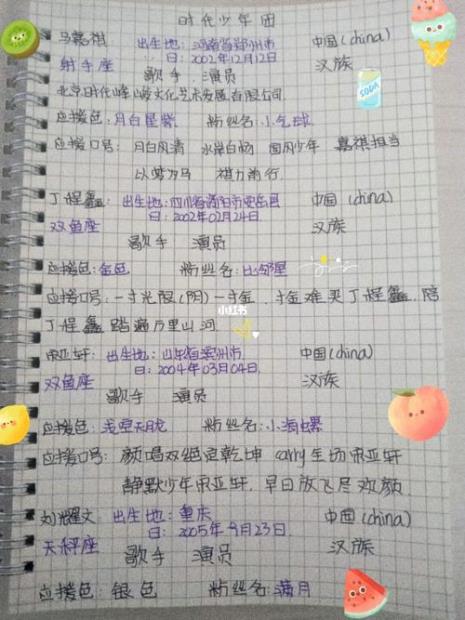 时代少年团
马嘉祺 出生地：河南省郑州市 中国(china)
射手座 日：2002年12月12日 汉族
歌手 演员
北京时代峰峻文化艺术发展有限公司
应援色：月白星紫 粉丝名：小气球
应援口号：月白风清 水岸白杨 国风少年 嘉祺担当
以紫为马 祺力前行
SODA
丁程鑫：出生地：四川省 市 县 中国(china)
双鱼座 日：2002年02月24日 汉族
歌手 演员
应援色：金色 粉丝名：比邻星
应援口号：一寸光程(阴)一寸金，寸金难买丁程鑫，陪
小红书
丁程鑫踏遍万里山河
宋亚轩：出生地：山东省滨州市 中国(china)
双鱼座 日：2004年03月04日. 汉族
歌手 演员
应援色： 粉丝名：小海螺
应援口号：颜唱双绝定乾坤 carry全场宋亚轩
静默少年宋亚轩，早日放飞尽欢颜.
刘耀文 出生地：重庆 中国(china)
天秤座 日：2005年9月23日. 汉族
歌手 演员
应援色：银色 粉丝名：满月